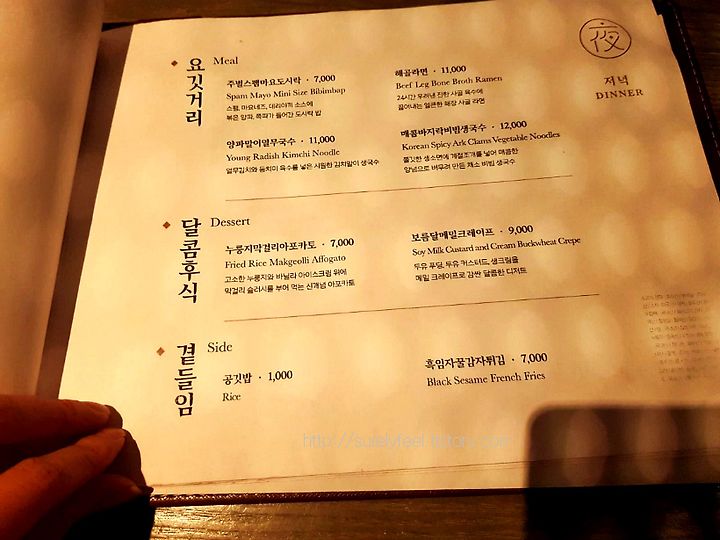 夜
저녁
DINNER
요깃거리
Meal
주벌스팸마요도시락 · 7,000
Spam Mayo Mini Size Bibimbap
스팸, 마요네즈, 데리야끼 소스에
볶은 양파, 쪽파가 들어간 도시락 밥
해골라면 · 11,000
Beef Leg Bone Broth Ramen
24시간 우려낸 진한 사골 육수에
끓여내는 얼큰한 해장 사골 라면
양파말이열무국수 · 11,000
Young Radish Kimchi Noodle
열무김치와 동치미 육수를 넣은 시원한 김치말이 생국수
매콤바지락비빔생국수 · 12,000
Korean Spicy Ark Clams Vegetable Noodles
쫄깃한 생소면에 계절조개를 넣어 매콤한
양념으로 버무려 만든 채소 비빔 생국수
달콤후식
Dessert
누룽지막걸리아포카토 · 7,000
Fried Rice Makgeolli Affogato
고소한 누룽지와 바닐라 아이스크림 위에
막걸리 슬러시를 부어 먹는 신개념 아포카토
보름달메밀크레이프 · 9,000
Soy Milk Custard and Cream Buckwheat Crepe
두유 푸딩, 두유 커스터드, 생크림을
메밀 크레이프로 감싼 달콤한 디저트
곁들임
Side
공깃밥 · 1,000
Rice
흑임자꿀감자튀김 · 7,000
Black Sesame French Fries